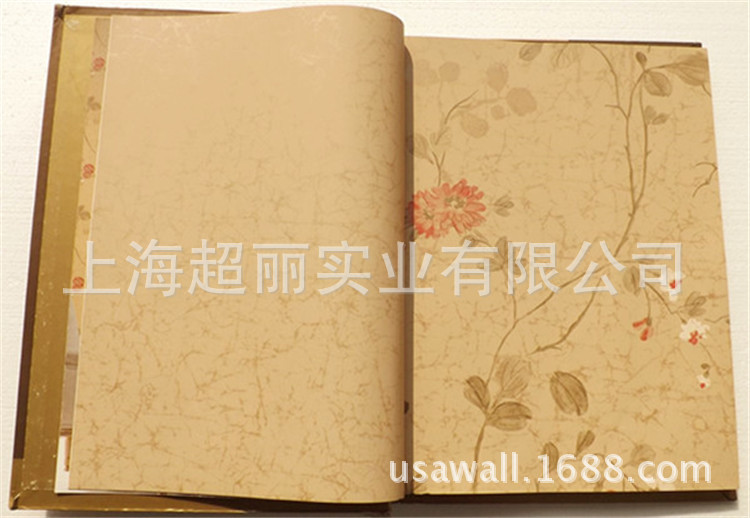 上海超丽实业有限公司
usawall.1688.com